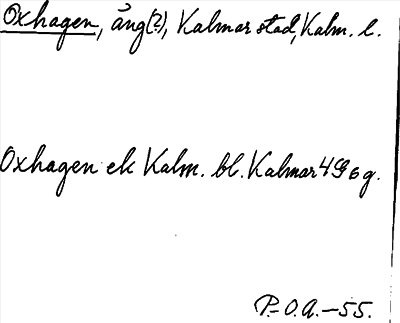 Oxhagen, äng(?), Kalmar stad, Kalm. l.
Oxhagen ek Kalm. bl. Kalmar 4G6g.
P.-O.A.-55.